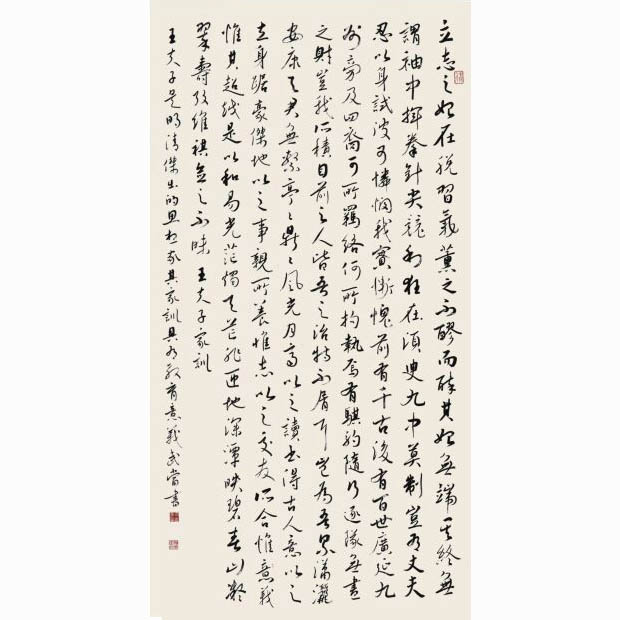 立志之始在脱習氣薰之不醪而醉其始無端其終無
謂袖中揮拳針尖競利狂在須臾九牛莫制豈有丈夫
忍以身試彼可憐憫我實慚愧前有千古後有百世廣延九
州旁及四裔何所羈絡何所拘執焉有騏駒隨行逐隊無盡
之財豈我所積目前之人皆吾之治特不屑耳豈為吾累瀟灑
安康天君無繫亭々鼎々風光月霽以之讀書得古人意以之
立身踞豪傑地以之事親所養惟志以之交友所合惟意義
惟其超越是以和易光芒燭天芳菲匝地深潭映碧春山凝
翠壽考維祺念之不昧 王夫子家訓
王夫子是明清傑出的思想家其家訓具有教育意義武當書